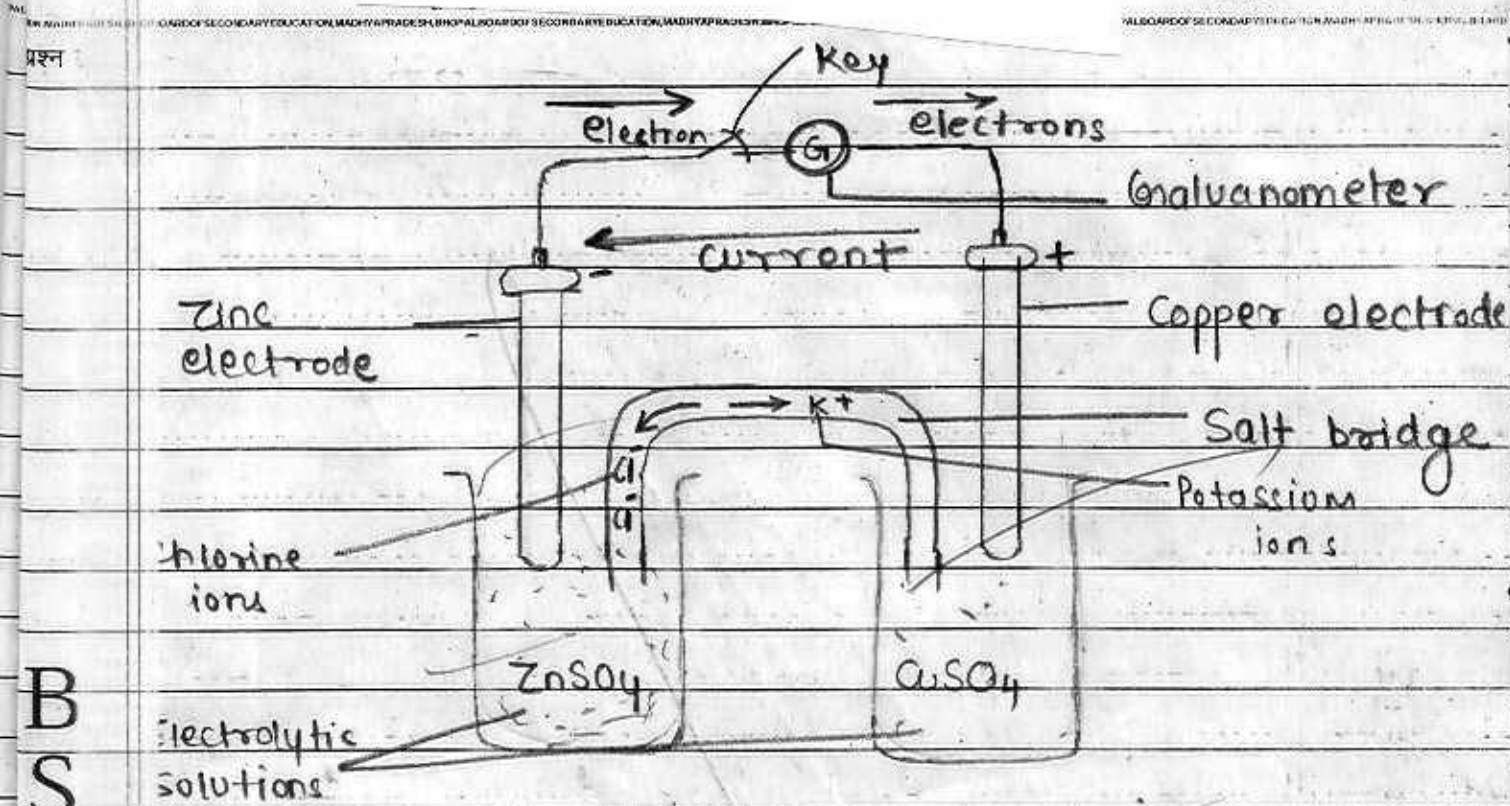 BOARD OF SECONDARY EDUCATION, MADHYA PRADESH, BHOPAL BOARD OF SECONDARY EDUCATION, MADHYA PRADESH
प्रश्न
Key
electron
electrons
G
Galvanometer
current
-
+
Zinc
electrode
Copper electrode
K+
Salt bridge
Cl-
Cl-
Potassium
ions
hlorine
ions
ZnSO4
CuSO4
B
lectrolytic
solutions
S